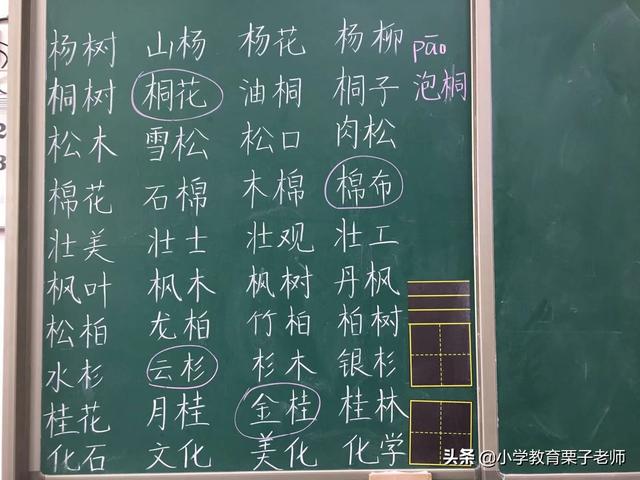 杨树 山杨 杨花 杨柳 pāo
桐树 桐花 油桐 桐子 泡桐
松木 雪松 松口 肉松
棉花 石棉 木棉 棉布
壮美 壮士 壮观 壮工
枫叶 枫木 枫树 丹枫
松柏 龙柏 竹柏 柏树
水杉 云杉 杉木 银杉
桂花 月桂 金桂 桂林
化石 文化 美化 化学
头条 @小学教育栗子老师